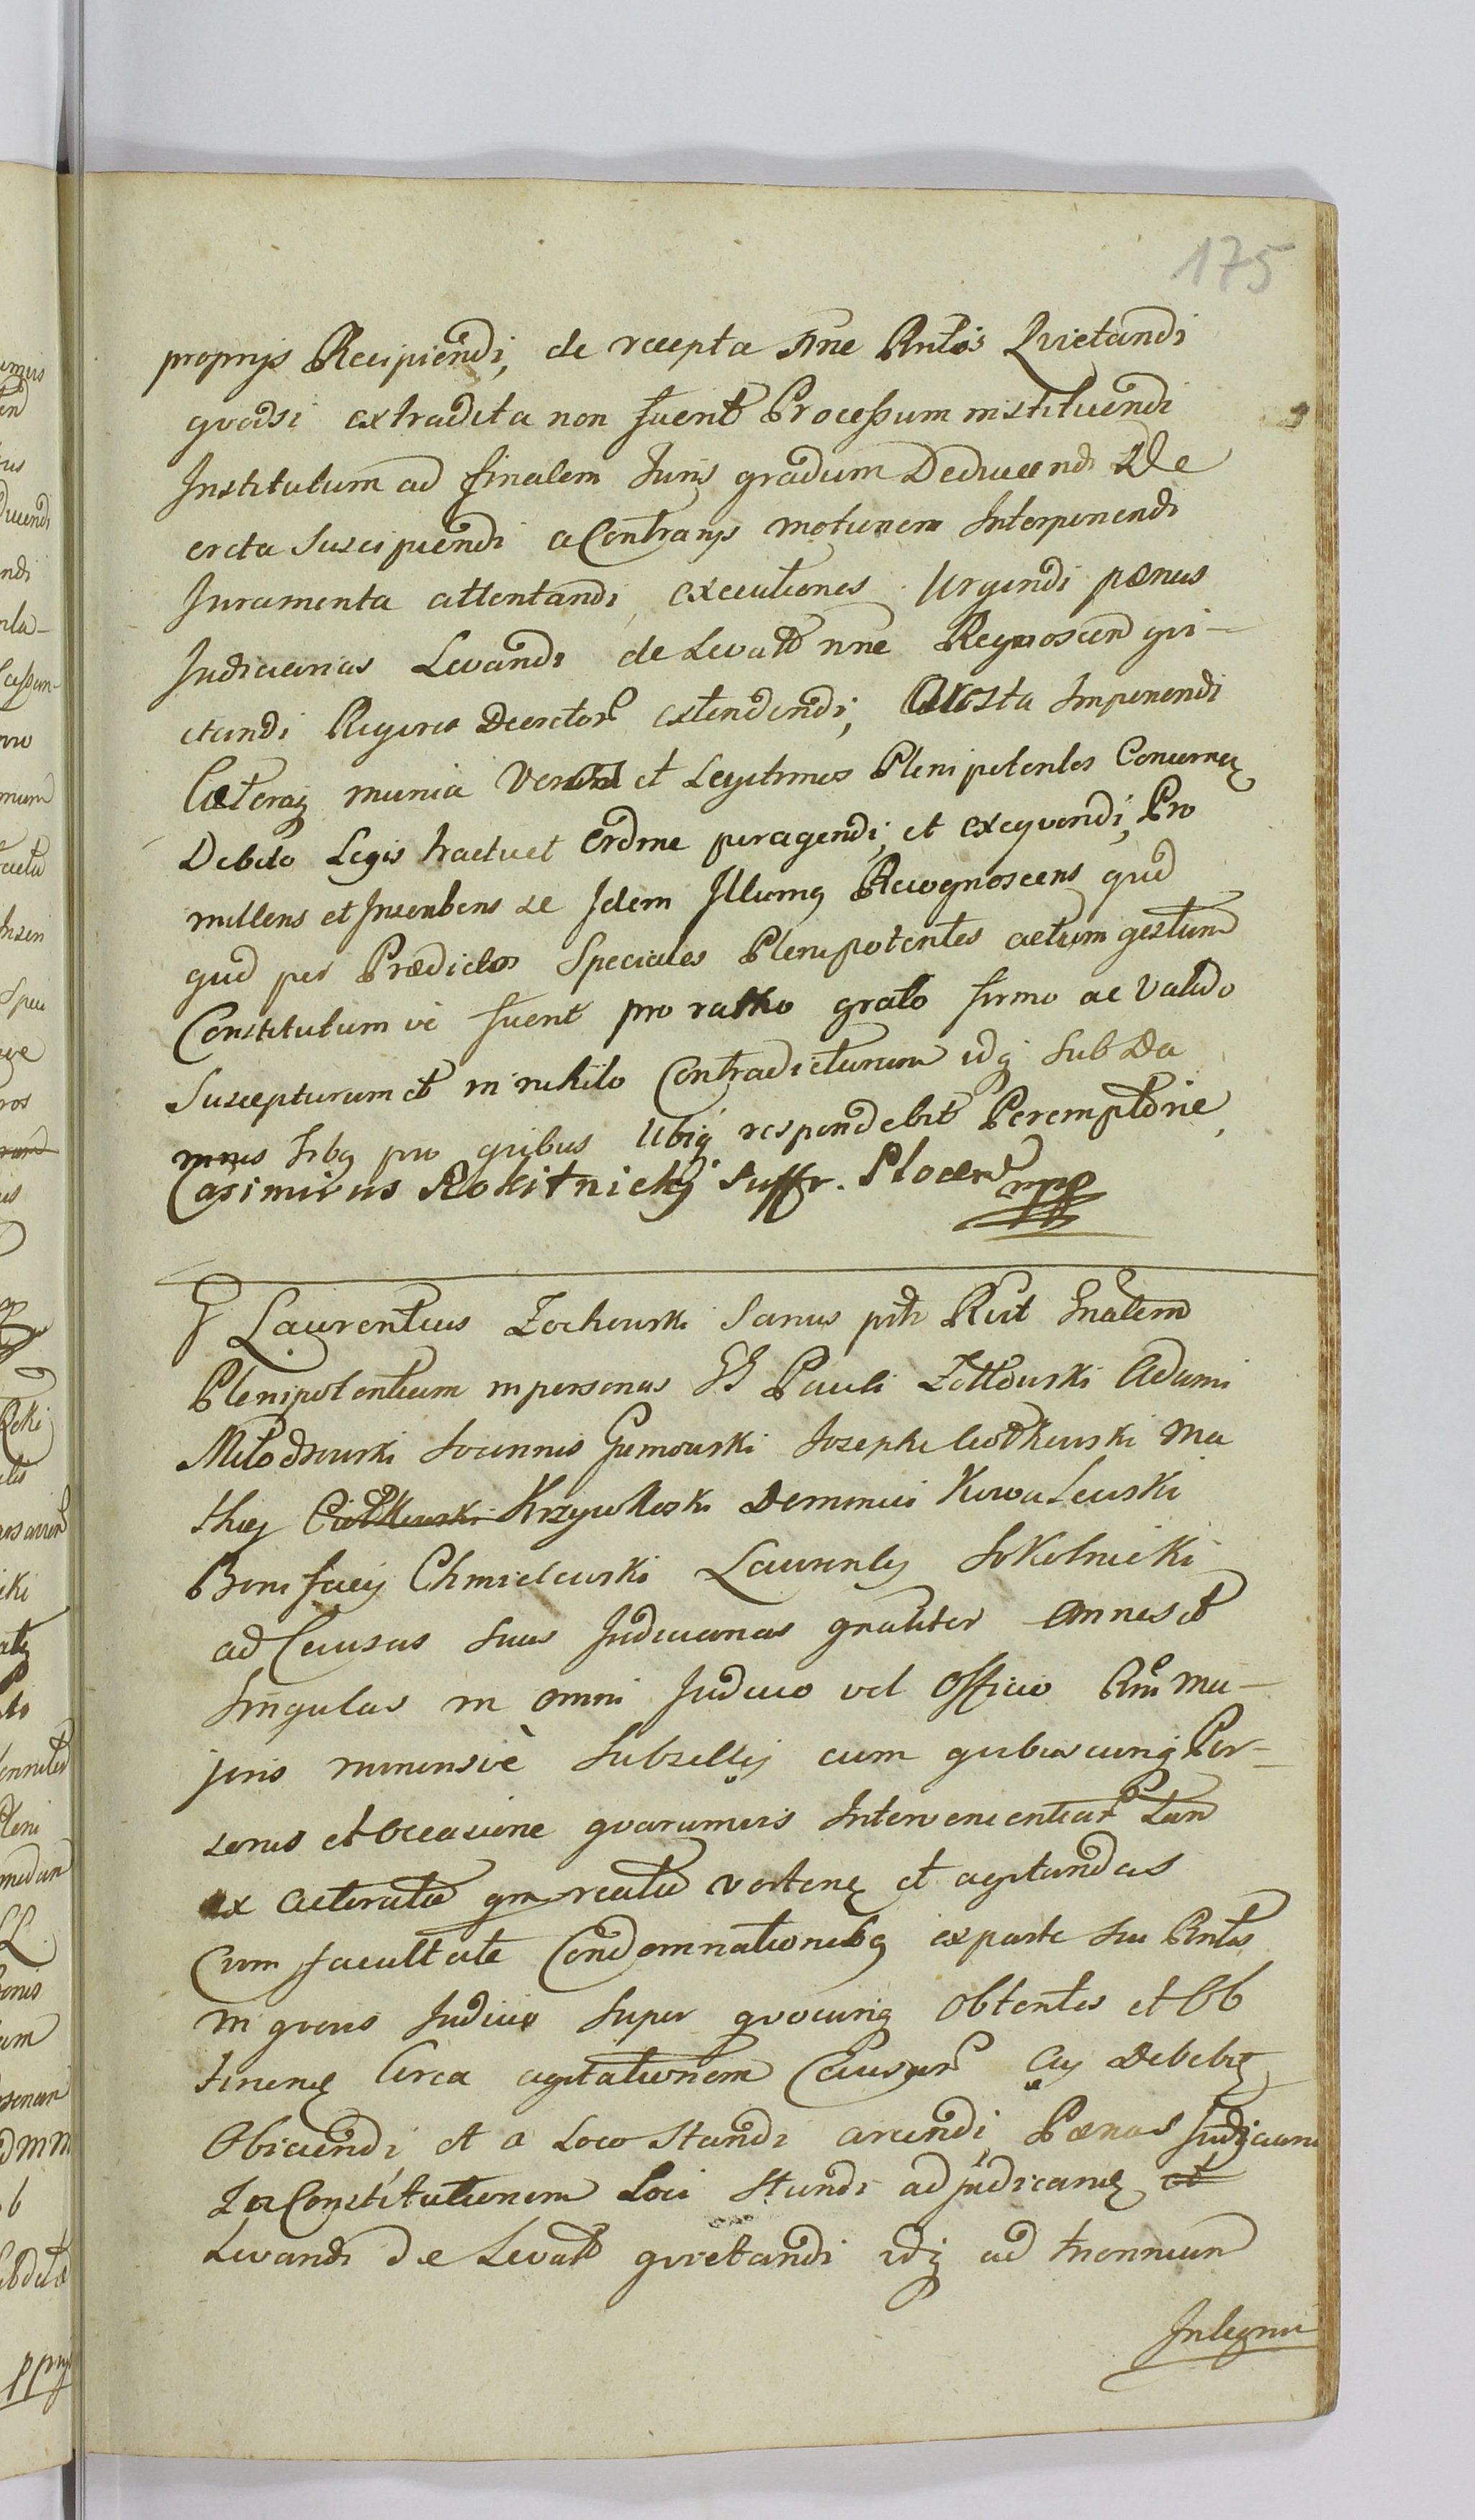 175
proprijs Recipiendi, de recepta nne Rntis Quietandi
quodsi extradita non fuerit Processum instituendi
Institutum ad finalem Juris gradum Deducendi De
creta Suscipiendi a Contrarijs motionem Interponendi
Juramenta attentandi, executiones Urgendi pænas
Judiciarias Levandi de Levatt nne Regnoscen qui-
etandi Rigores Decretor extendendi, Aresta Imponendi
Cæteraq munia Veros et Legitimos Plenipotentes Concerneñ
Debito Legis tractu et Ordine peragendi, et exequendi, Pro
mittens et Inscribens se Idem Illumq Recognoscens quid
quid per Prædictos Speciales Plenipotentes actum gestum
Constitutum vè fuerit pro ratho grato firmo ac Valido
Suscepturum et in nihilo Contradicturum idq sub Da
mnis hibq pro quibus Ubiq respondebit Peremptorie,
Casimirus Rokitnicky Suffr. Plocen mpp
G Laurentius Zochowski Sanus pth Rcit Gnalem
Plenipotentiam in personas GG Pauli Zołtowski Adami
Miłodrowski Joannis Gumowski Josephi Ciołkowski Ma
thej Ciołkowski Krzywkoski Dominici Kowalewski
Bonifacij Chmielewski Laurentij Sokolnicki
ad Causas Suas Judiciarias gnaliter Omnes et
Singulas in omni Judicio vel Officio Rni Ma-
joris minorisvè Subsellij cum quibuscunq Per-
sonis et occasione quarumvis Intervenientiar tam
ex actoratu qm reatu verteneñ et agitandas
Cum facultate Condemnationibq ex parte sui Rntis
in quovis Judicio Super quocunq obtentis et Ob
tineneñ Circa agitationem Causar Cuj Debebit
Obiciendi, et a Loco Standi arcendi, Pænas Judiciari
In Constitutionem Loci Standi adjudicaneñ et
Levandi De Levatt quietandi idq ad trennium
Integrum